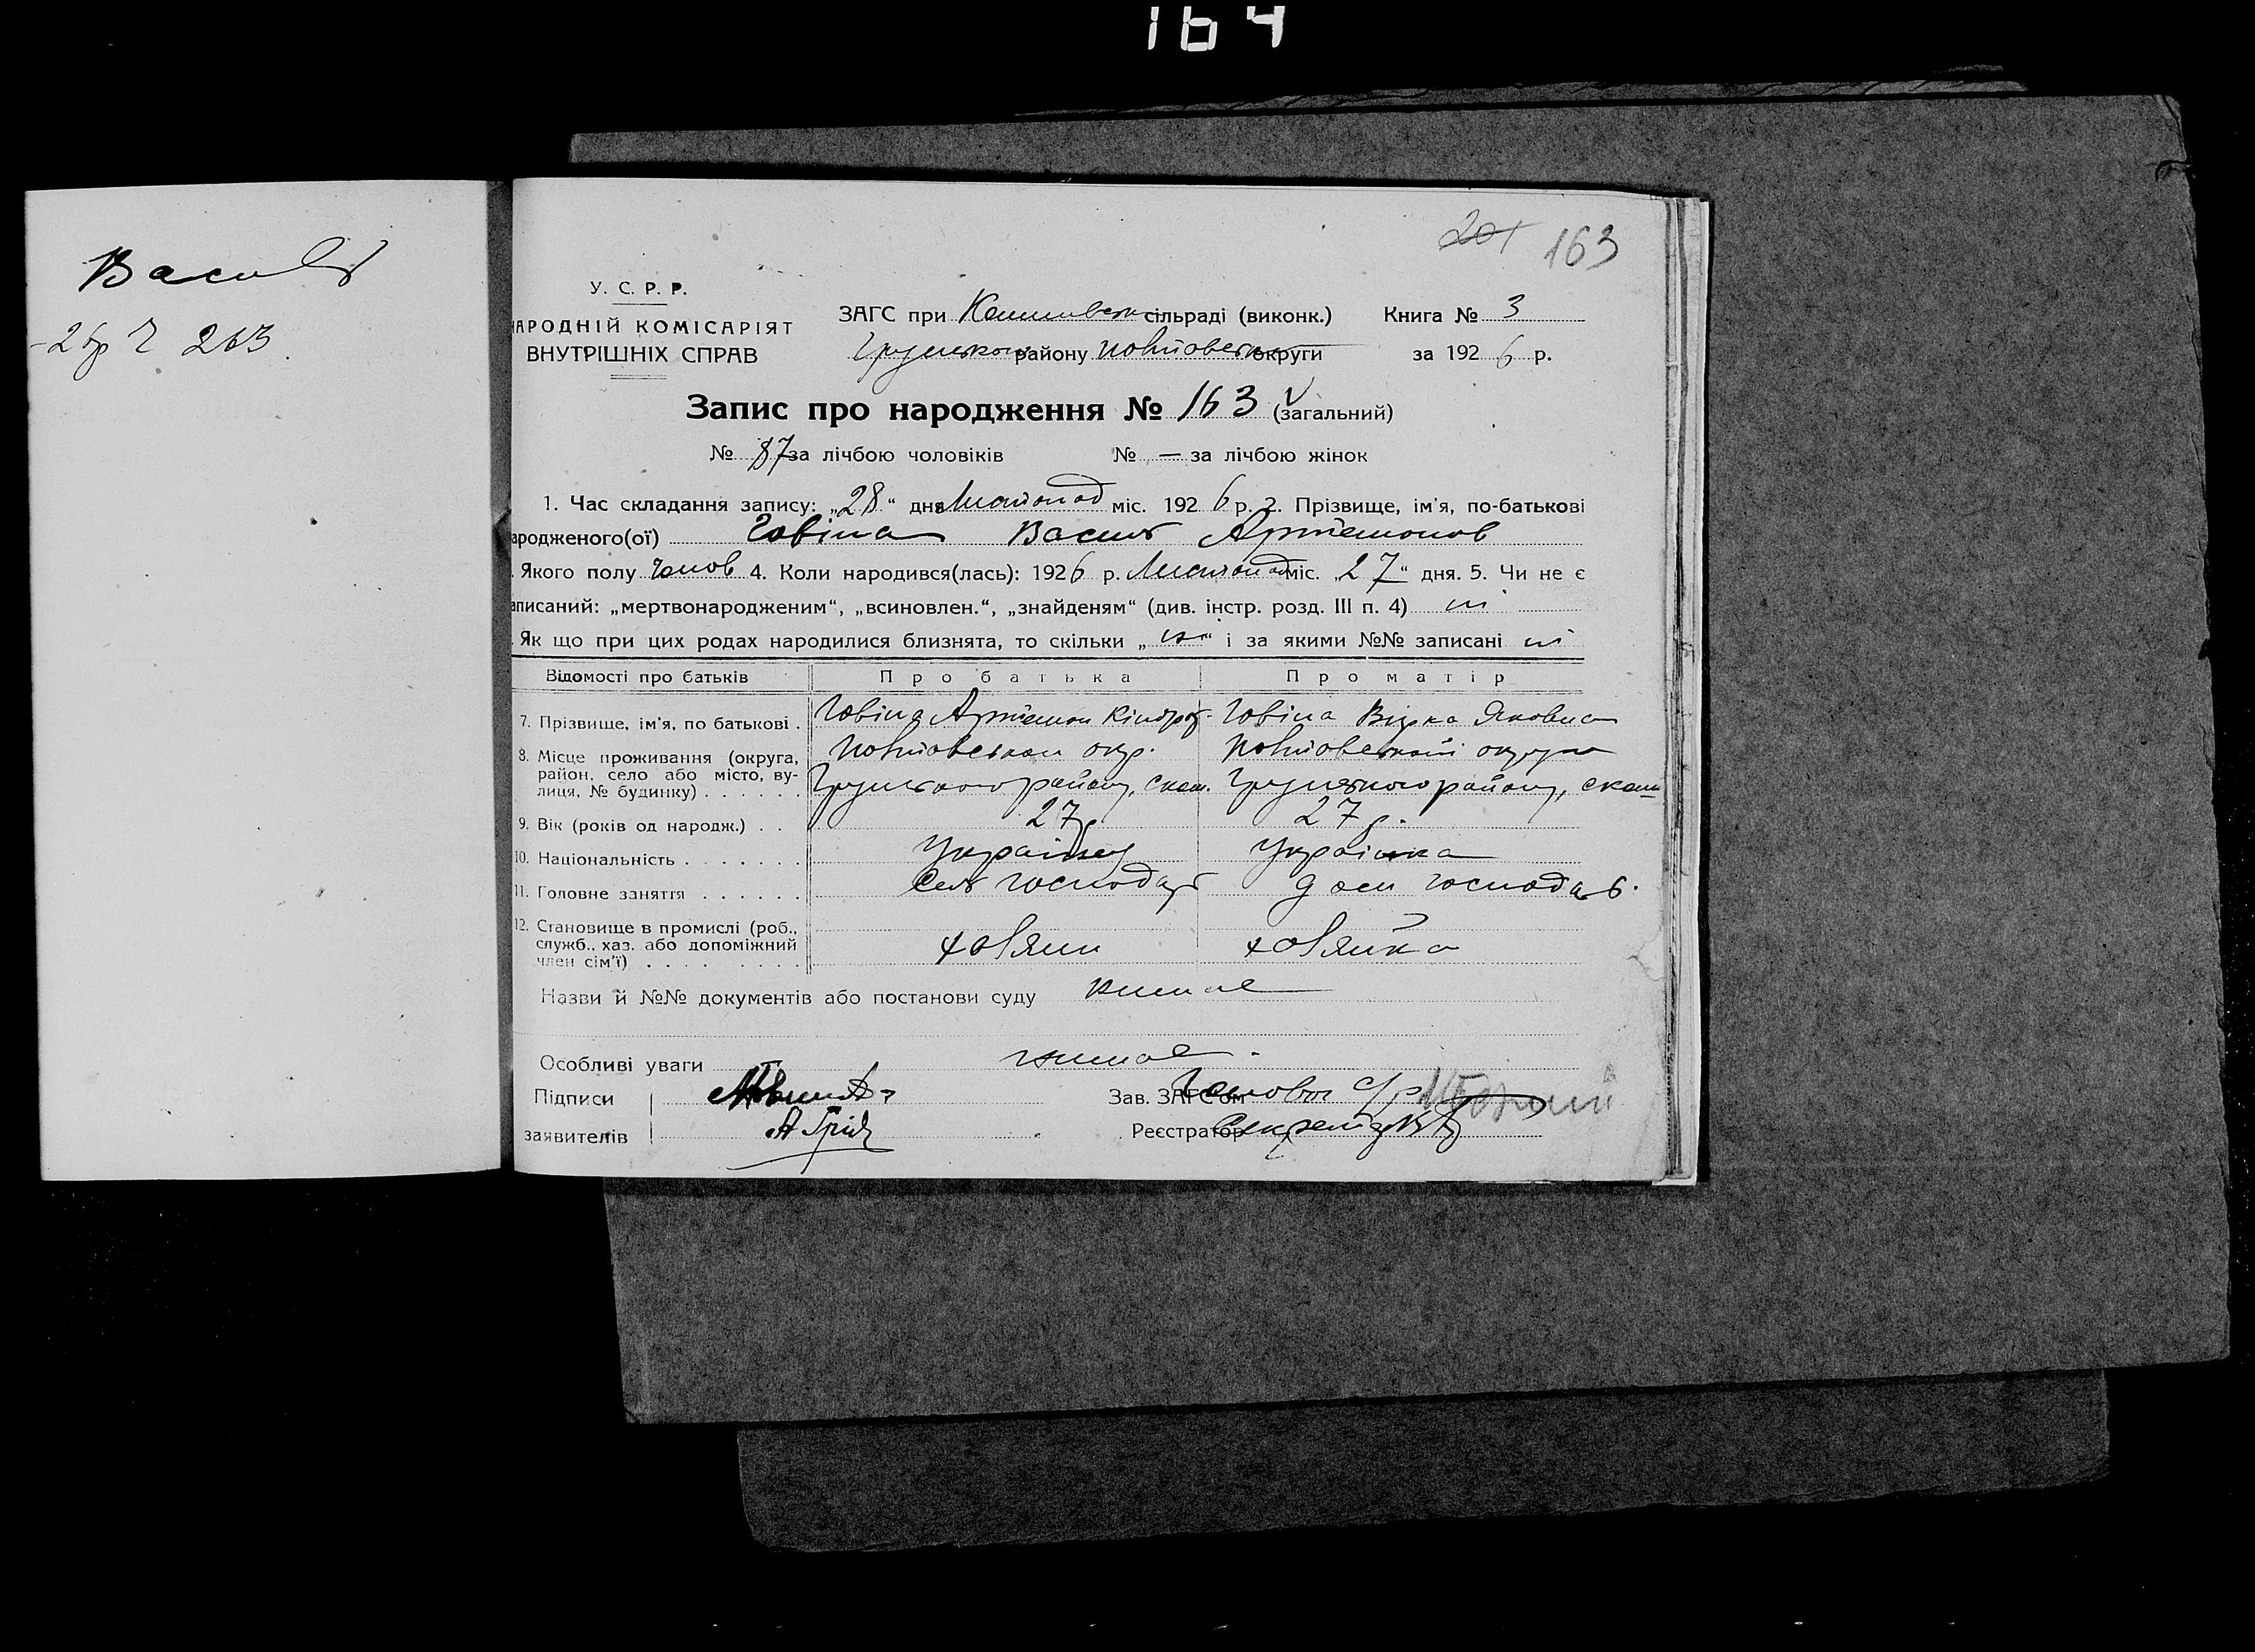 164
Василь
263
201 163
У. С. Р. Р.
АРОДНІЙ КОМІСАРІЯТ
ВНУТРІШНІХ СПРАВ
ЗАГС при сільраді (виконк.) Книга № 3
району Полтавськ округи за 1926 р.
Запис про народження № 163 (загальний)
№ 87 за лічбою чоловіків № — за лічбою жінок
1. Час складання запису: „28“ дня Листопад міс. 1926 р. 2. Прізвище, ім'я, по-батькові
ародженого(ої) Говіна Василь Артемонов
. Якого полу чолов 4. Коли народився(лась): 1926 р. Листопад міс. „27“ дня. 5. Чи не є
аписаний: „мертвонародженим“, „всиновлен.“, „знайденям“ (див. інстр. розд. III п. 4) ні
. Як що при цих родах народилися близнята, то скільки „ “ і за якими №№ записані ні
Відомості про батьків Про батька Про матір
7. Прізвище, ім'я, по батькові . Говіна Артемон Кіндрат. Говіна Вірка Яковна
8. Місце проживання (округа, район, село або місто, вулиця, № будинку) . . . . . . Полтавської окр. Полтавської округи
Грунського району, с Грунського району, с
9. Вік (років од народж.) . . 27 р. 27 р.
10. Національність . . . . . . . Українец Українка
11. Головне заняття . . . . . . Сель господар дом господар.
12. Становище в промислі (роб., служб., хаз. або допоміжний член сім'ї) . . . . . . . . хозяин хозяйка
Назви й №№ документів або постанови суду немає
Особливі уваги немає.
Підписи Зав. ЗАГС'ом Голова с/р
заявителів Реєстратор Секретарь